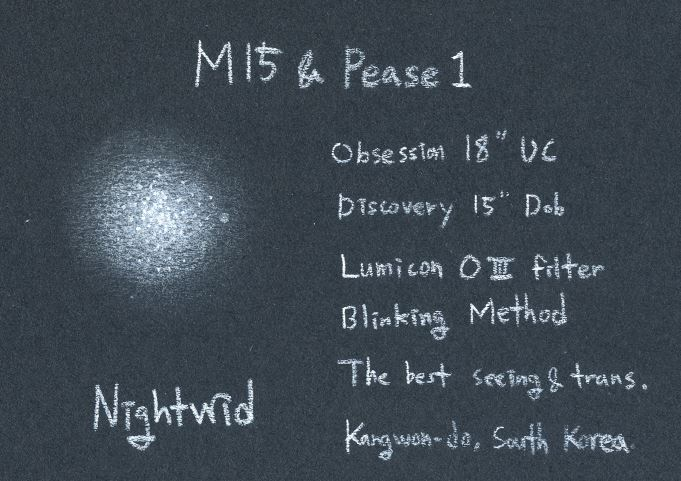 M15 & Pease 1
Obsession 18" UC
Discovery 15" Dob
Lumicon O III filter
Blinking Method
The best seeing & trans.
Kangwon-do, South Korea.
Nightwid